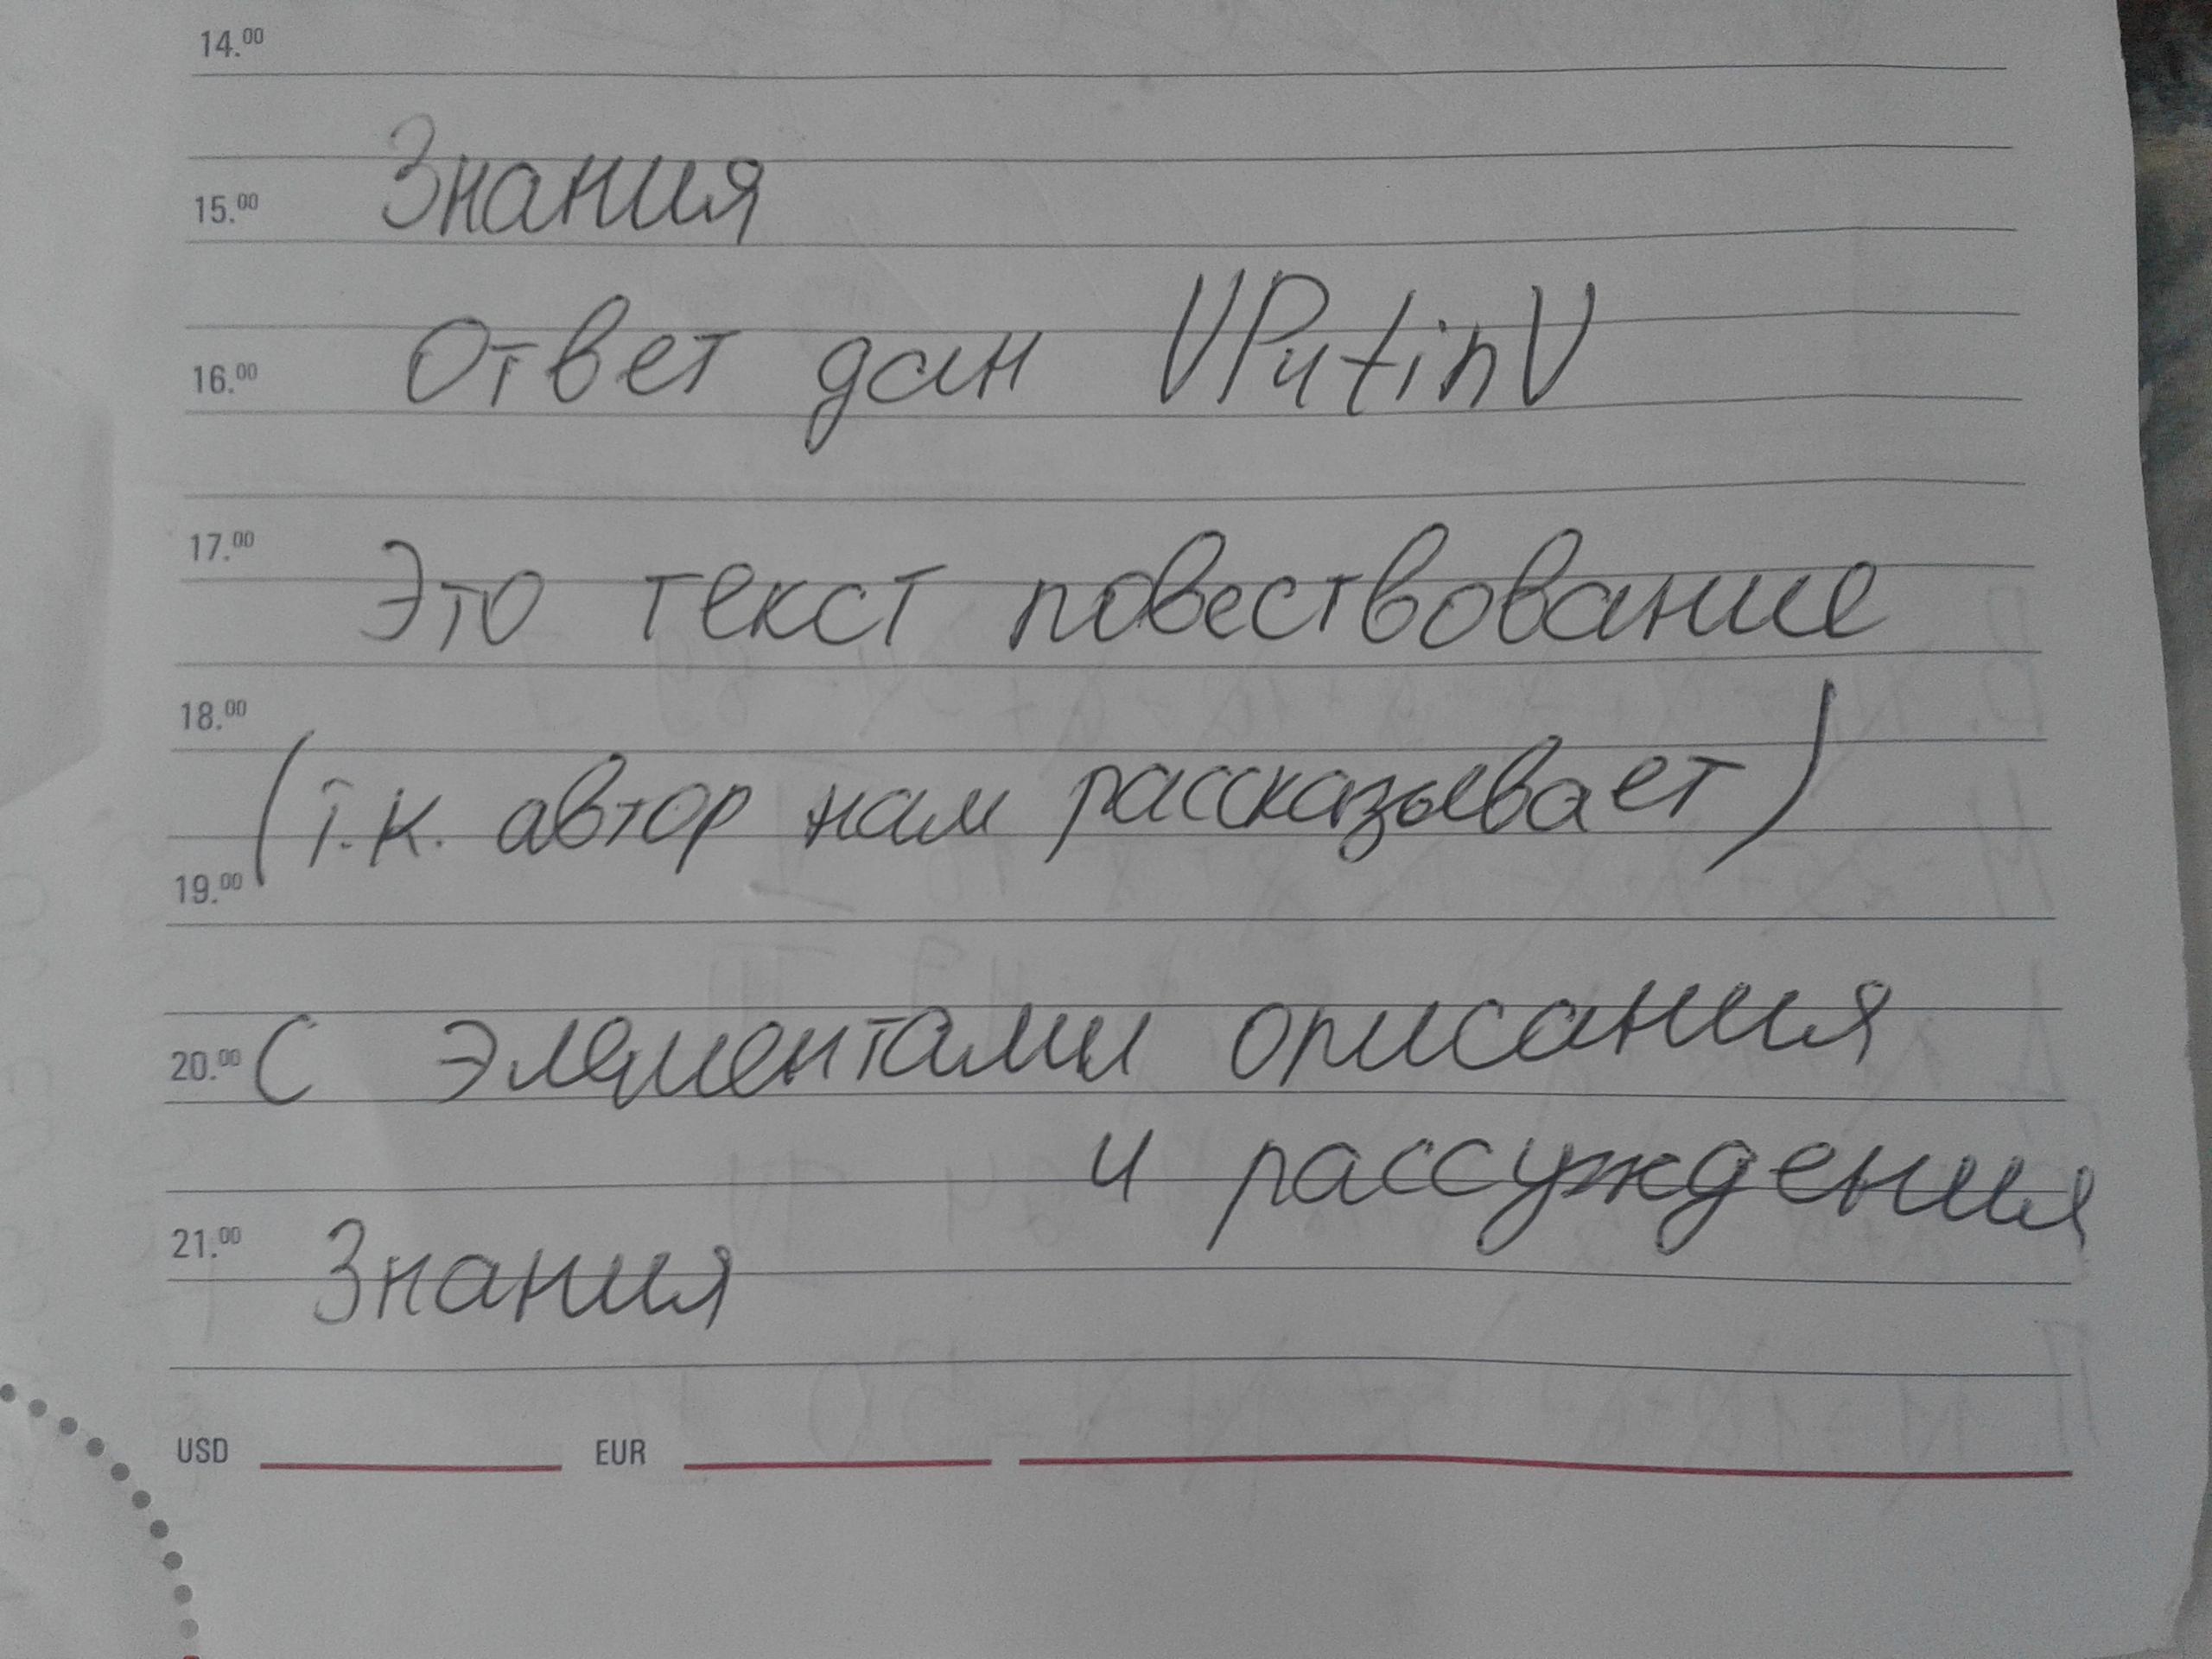 14.00
Знания
15.00
Ответ дан VPutinV
16.00
17.00
Это текст повествование
18.00
(т.к. автор нам рассказывает)
19.00
20.00 с элементами описания
и рассуждения
21.00
Знания
USD EUR